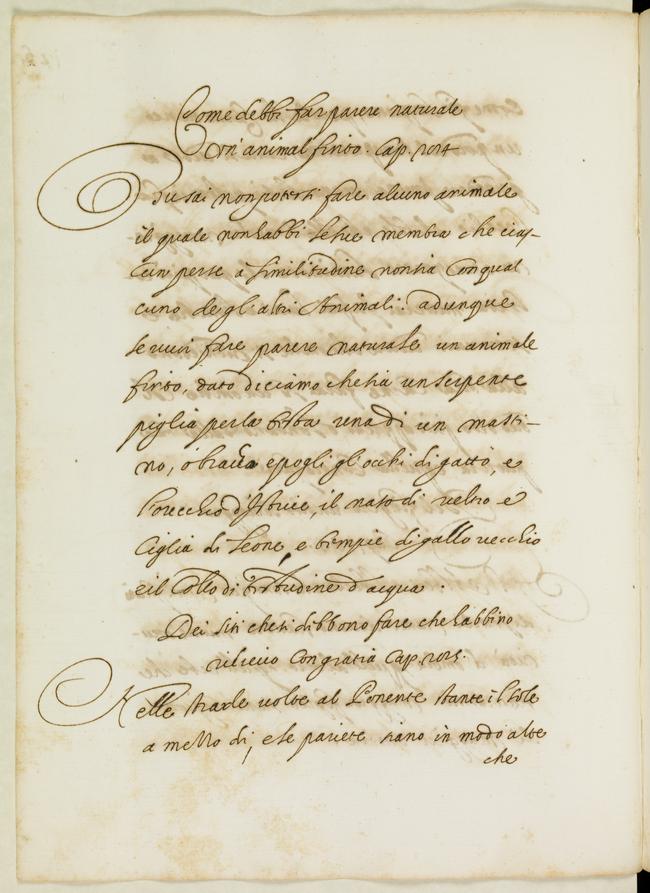 Come debbi far parere naturale
un' animal finto. Cap. 104
Tu sai non potersi fare alcuno animale
il quale non habbi le sue membra che cias-
cun perse à similitudine non sia con qual
cuno de gl' altri Animali: adunque
se vuoi fare parere naturale un animale
finto, dato diciamo che sia un serpente
piglia per la testa una di un masti-
no, ò bracco e pogli gl' occhi di gatto, e
l'orecchio d'Istrice, il naso di veltro e
Ciglia di Leone, e tempie di gallo vecchio
e il Collo di testudine d' acqua.
Dei siti che si debbono fare che habbino
rilievo con gratia Cap. 105.
Nelle strade volte al Ponente stante il sole
a mezzo di, e le pariete siano in modo alte
che